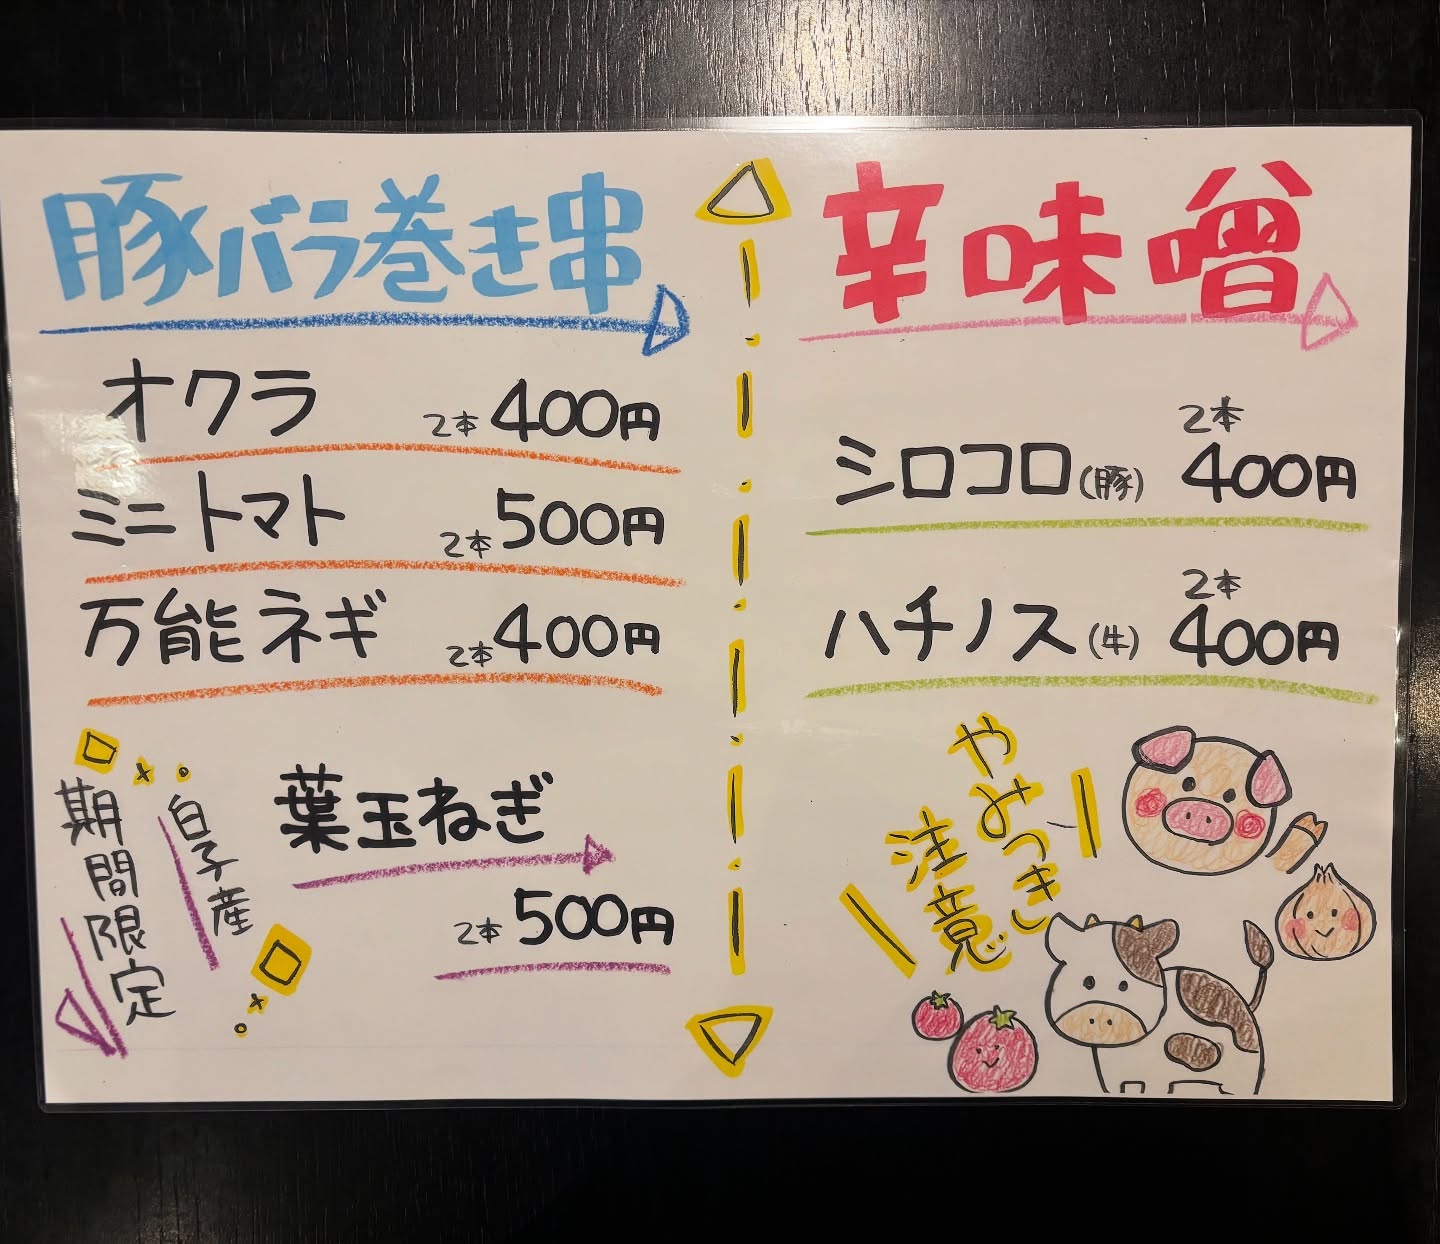 豚バラ巻き串
オクラ 2本 400円
ミニトマト 2本 500円
万能ネギ 2本 400円
期間限定
白子産
葉玉ねぎ
2本 500円
辛味噌
シロコロ(豚) 2本 400円
ハチノス(牛) 2本 400円
やみつき
注意